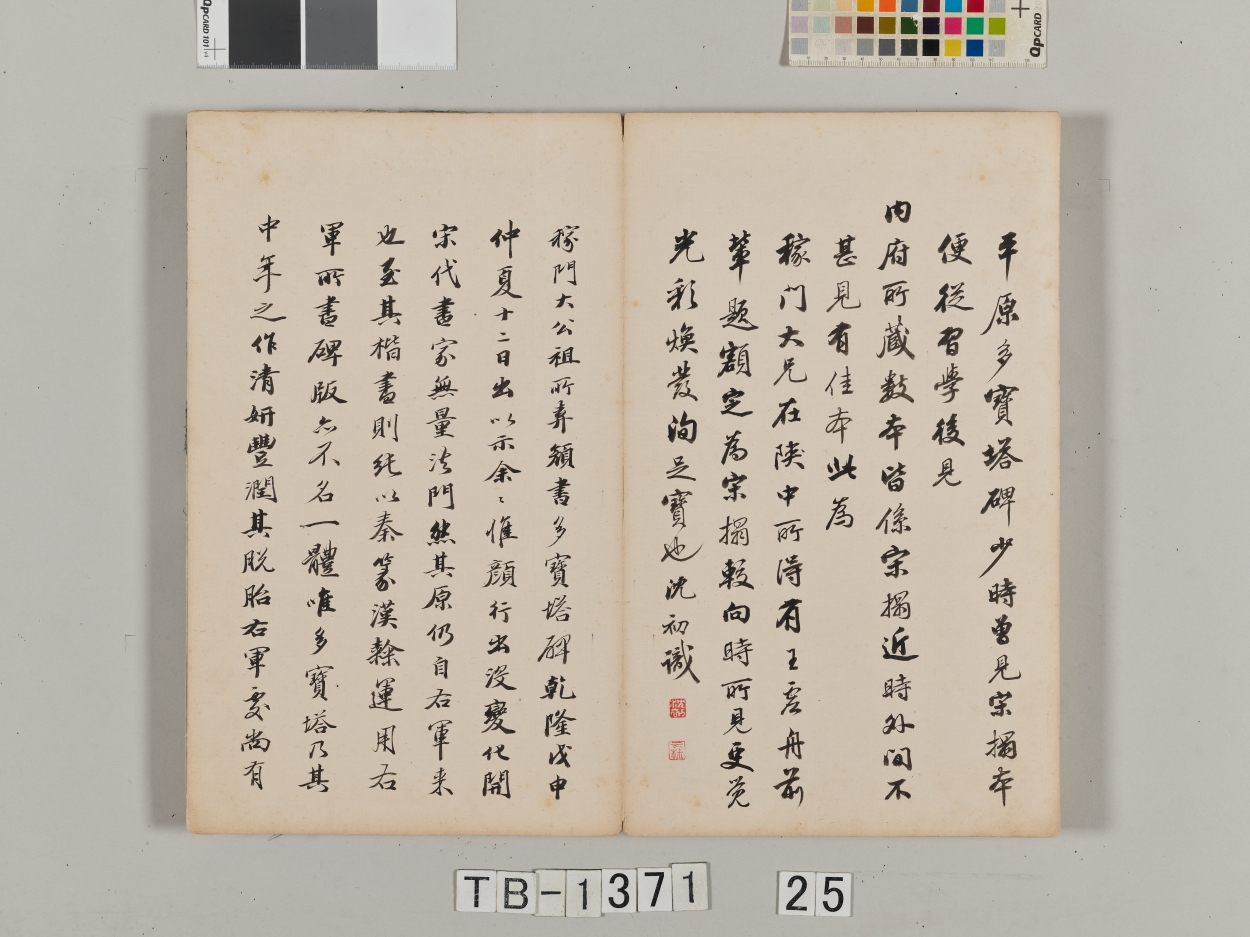 平原多寶塔碑少時曾見宋搨本
便從習學後見
内府所藏數本皆係宋搨近時外間不
甚見有佳本此為
稼門大兄在陝中所得有王虛舟前
輩題額定為宋搨較向時所見更覺
光彩煥發洵足寶也沈初識
稼門大公祖所弆顏書多寶塔碑乾隆戊申
仲夏十二日出以示余〻惟顏行出沒變化開
宋代書家無量法門然其原仍自右軍来
也至其楷書則純以秦篆漢隸運用右
軍所書碑版亦不名一體唯多寶塔乃其
中年之作清妍豐潤其脱胎右軍處尚有
QPCARD 101
QPCARD
TB-1371
25